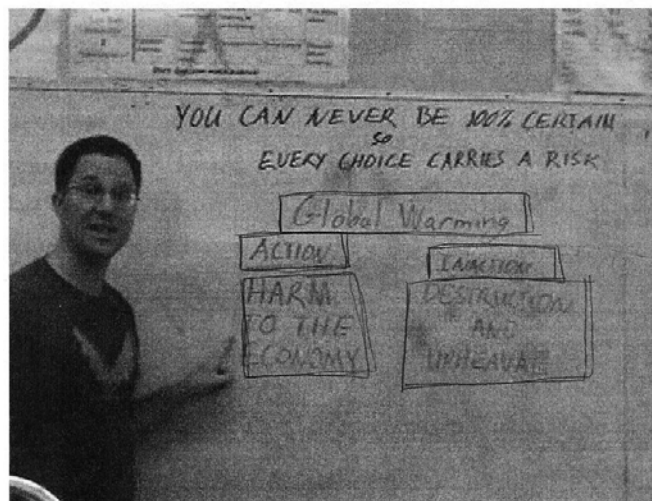 YOU CAN NEVER BE 100% CERTAIN
SO
EVERY CHOICE CARRIES A RISK
Global Warming
ACTION
INACTION
HARM
TO THE
ECONOMY
DESTRUCTION
AND
UPHEAVAL